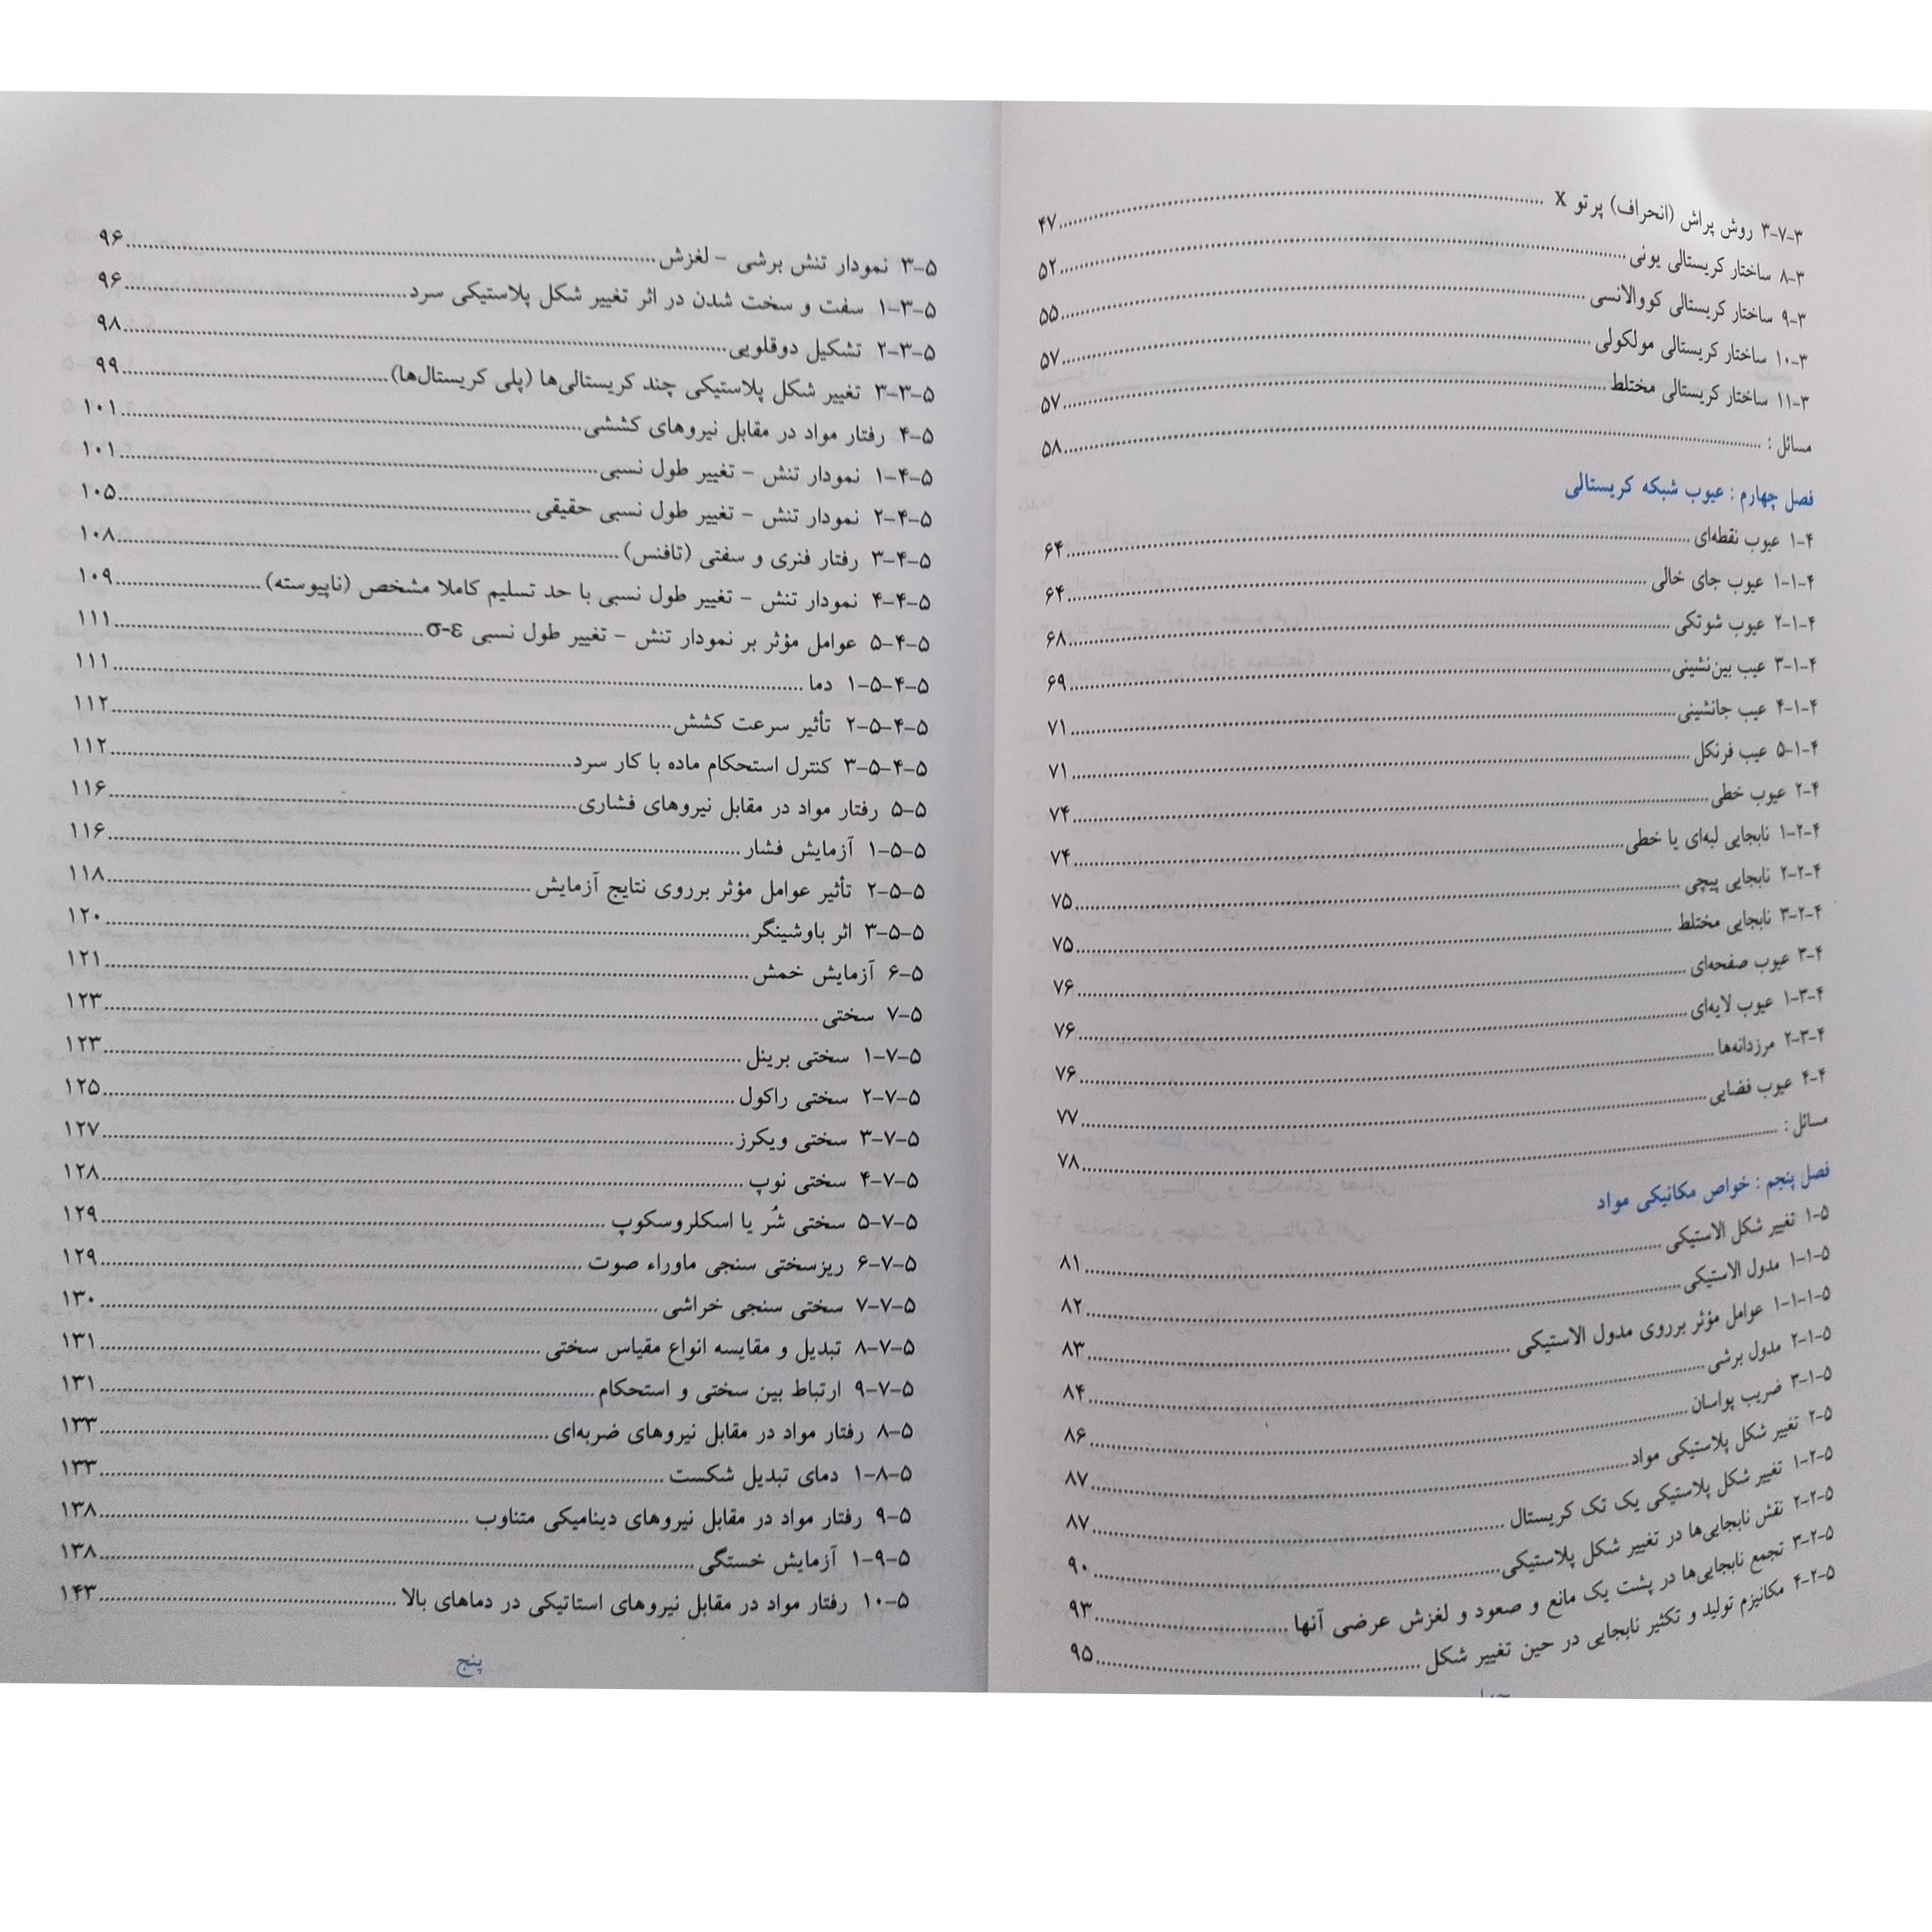 ۳-۷-۳ روش پراش (انحراف) پرتو X ........ ۴۷
۳-۸ ساختار کریستالی یونی ........ ۵۲
۳-۹ ساختار کریستالی کووالانسی ........ ۵۵
۳-۱۰ ساختار کریستالی مولکولی ........ ۵۷
۳-۱۱ ساختار کریستالی مختلط ........ ۵۷
مسائل : ........ ۵۸
فصل چهارم : عیوب شبکه کریستالی
۴-۱ عیوب نقطه‌ای ........ ۶۴
۴-۱-۱ عیوب جای خالی ........ ۶۴
۴-۱-۲ عیوب شوتکی ........ ۶۸
۴-۱-۳ عیب بین‌نشینی ........ ۶۹
۴-۱-۴ عیب جانشینی ........ ۷۱
۴-۱-۵ عیب فرنکل ........ ۷۱
۴-۲ عیوب خطی ........ ۷۴
۴-۲-۱ نابجایی لبه‌ای یا خطی ........ ۷۴
۴-۲-۲ نابجایی پیچی ........ ۷۵
۴-۲-۳ نابجایی مختلط ........ ۷۵
۴-۳ عیوب صفحه‌ای ........ ۷۶
۴-۳-۱ عیوب لایه‌ای ........ ۷۶
۴-۳-۲ مرزدانه‌ها ........ ۷۶
۴-۴ عیوب فضایی ........ ۷۷
مسائل : ........ ۷۸
فصل پنجم : خواص مکانیکی مواد
۵-۱ تغییر شکل الاستیکی ........ ۸۱
۵-۱-۱ مدول الاستیکی ........ ۸۲
۵-۱-۱-۱ عوامل مؤثر برروی مدول الاستیکی ........ ۸۳
۵-۱-۲ مدول برشی ........ ۸۴
۵-۱-۳ ضریب پواسان ........ ۸۶
۵-۲ تغییر شکل پلاستیکی مواد ........ ۸۷
۵-۲-۱ تغییر شکل پلاستیکی یک تک کریستال ........ ۸۷
۵-۲-۲ نقش نابجایی‌ها در تغییر شکل پلاستیکی ........ ۹۰
۵-۲-۳ تجمع نابجایی‌ها در پشت یک مانع و صعود و لغزش عرضی آنها ........ ۹۳
۵-۲-۴ مکانیزم تولید و تکثیر نابجایی در حین تغییر شکل ........ ۹۵
۵-۳ نمودار تنش برشی – لغزش ........ ۹۶
۵-۳-۱ سفت و سخت شدن در اثر تغییر شکل پلاستیکی سرد ........ ۹۶
۵-۳-۲ تشکیل دوقلویی ........ ۹۸
۵-۳-۳ تغییر شکل پلاستیکی چند کریستالی‌ها (پلی کریستال‌ها) ........ ۹۹
۵-۴ رفتار مواد در مقابل نیروهای کششی ........ ۱۰۱
۵-۴-۱ نمودار تنش – تغییر طول نسبی ........ ۱۰۱
۵-۴-۲ نمودار تنش – تغییر طول نسبی حقیقی ........ ۱۰۵
۵-۴-۳ رفتار فنری و سفتی (تافنس) ........ ۱۰۸
۵-۴-۴ نمودار تنش – تغییر طول نسبی با حد تسلیم کاملا مشخص (ناپیوسته) ........ ۱۰۹
۵-۴-۵ عوامل مؤثر بر نمودار تنش – تغییر طول نسبی σ-ε ........ ۱۱۱
۵-۴-۵-۱ دما ........ ۱۱۱
۵-۴-۵-۲ تأثیر سرعت کشش ........ ۱۱۲
۵-۴-۵-۳ کنترل استحکام ماده با کار سرد ........ ۱۱۲
۵-۵ رفتار مواد در مقابل نیروهای فشاری ........ ۱۱۶
۵-۵-۱ آزمایش فشار ........ ۱۱۶
۵-۵-۲ تأثیر عوامل مؤثر برروی نتایج آزمایش ........ ۱۱۸
۵-۵-۳ اثر باوشینگر ........ ۱۲۰
۵-۶ آزمایش خمش ........ ۱۲۱
۵-۷ سختی ........ ۱۲۳
۵-۷-۱ سختی برینل ........ ۱۲۳
۵-۷-۲ سختی راکول ........ ۱۲۵
۵-۷-۳ سختی ویکرز ........ ۱۲۷
۵-۷-۴ سختی نوپ ........ ۱۲۸
۵-۷-۵ سختی شُر یا اسکلروسکوپ ........ ۱۲۹
۵-۷-۶ ریزسختی سنجی ماوراء صوت ........ ۱۲۹
۵-۷-۷ سختی سنجی خراشی ........ ۱۳۰
۵-۷-۸ تبدیل و مقایسه انواع مقیاس سختی ........ ۱۳۱
۵-۷-۹ ارتباط بین سختی و استحکام ........ ۱۳۱
۵-۸ رفتار مواد در مقابل نیروهای ضربه‌ای ........ ۱۳۳
۵-۸-۱ دمای تبدیل شکست ........ ۱۳۳
۵-۹ رفتار مواد در مقابل نیروهای دینامیکی متناوب ........ ۱۳۸
۵-۹-۱ آزمایش خستگی ........ ۱۳۸
۵-۱۰ رفتار مواد در مقابل نیروهای استاتیکی در دماهای بالا ........ ۱۴۳
پنج